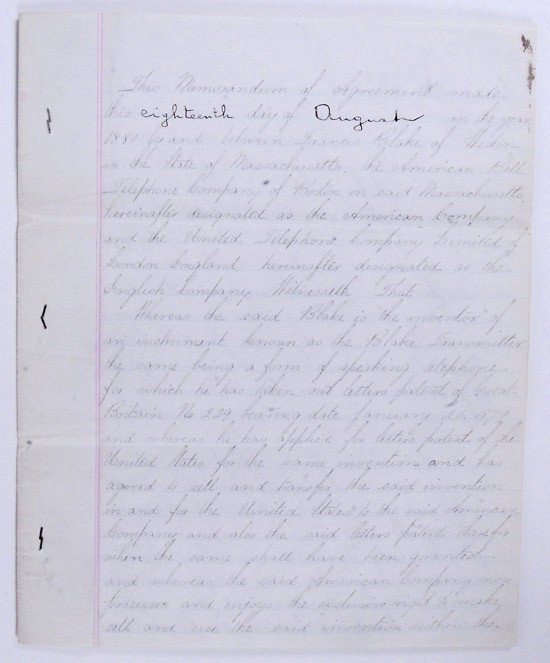 This Memorandum of Agreement made
this eighteenth day of August in the year
1880 by and between Francis Blake of Weston
in the State of Massachusetts, the American Bell
Telephone Company of Boston in said Massachusetts,
hereinafter designated as the American Company
and the United Telephone Company Limited of
London England, hereinafter designated as the
English Company, Witnesseth That
Whereas the said Blake is the inventor of
an instrument known as the Blake Transmitter
the same being a form of speaking telephone
for which he has taken out letters patent of Great
Britain No 229 bearing date January 20 1879
and whereas he has applied for letters patent of the
United States for the same invention and has
agreed to sell and transfer the said invention
in and for the United States to the said American
Company and also the said letters patent therefor
when the same shall have been granted
and whereas the said American Company now
possesses and enjoys the exclusive right to make,
sell and use the said invention within the